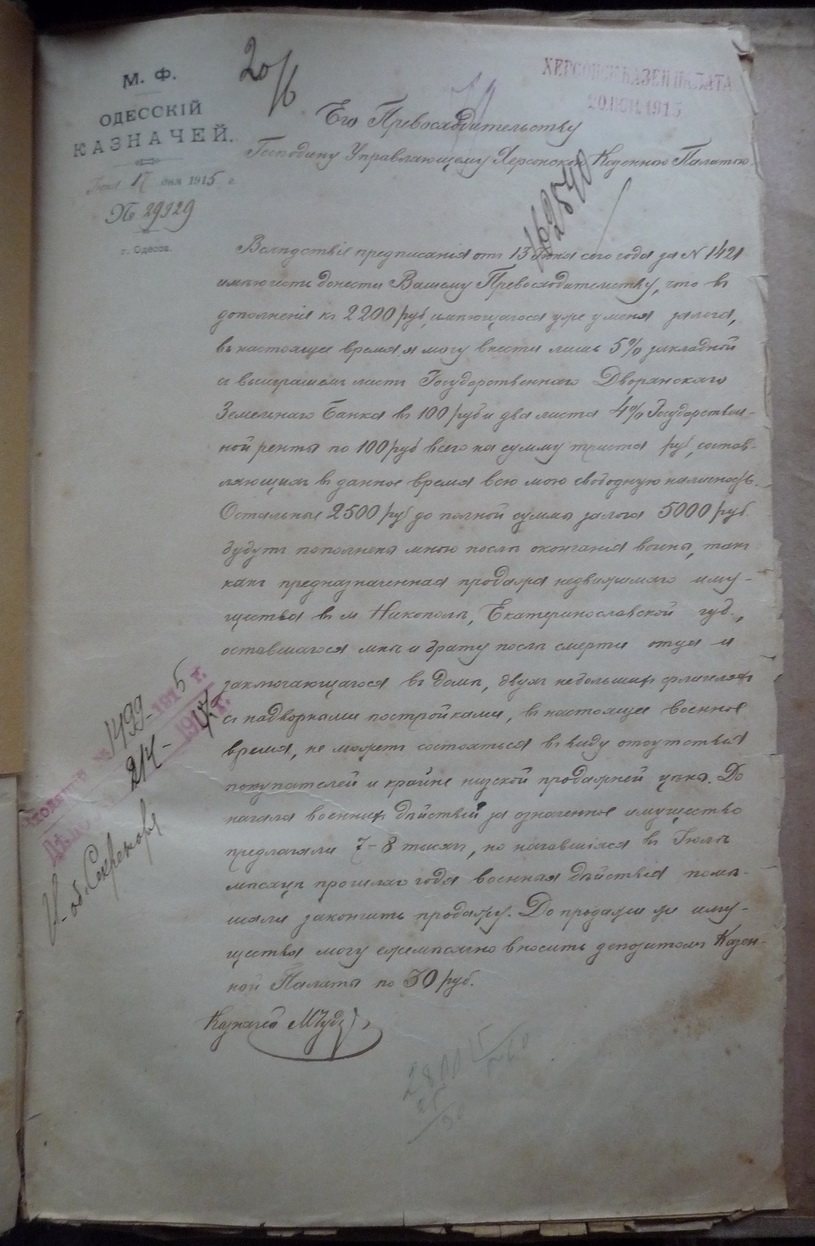 М. Ф.
ОДЕССКІЙ
КАЗНАЧЕЙ.
17 дня 1915 г.
№ 29129
г. Одесса.
20/6
ХЕРСОНСК. КАЗЕН. ПАЛАТА
20 ІЮН. 1915
Его Превосходительству
Господину Управляющему Херсонской Казенною Палатою.
Вслѣдствіе предписанія отъ 13 Іюня сего года за № 1421
имѣю честь донести Вашему Превосходительству, что въ
дополненіе къ 2200 руб, имѣющагося уже у меня залога,
въ настоящее время я могу внести лишь 5% закладной
съ выигрышемъ листъ Государственнаго Дворянскаго
Земельнаго Банка въ 100 руб и два листа 4% Государствен-
ной ренты по 100 руб всего на сумму триста руб, состав-
ляющихъ въ данное время всю мою свободную наличность.
Остальные 2500 руб до полной суммы залога 5000 руб.
будутъ пополнены мною послѣ окончанія войны, такъ
какъ предназначенная продажа недвижимаго иму-
щества въ м Никополѣ, Екатеринославской губ.,
оставшагося мнѣ и брату послѣ смерти отца и
заключающагося въ домѣ, двухъ небольшихъ флигелях
съ надворными постройками, въ настоящее военное
время, не можетъ состояться въ виду отсутствія
покупателей и крайне низкой продажней цѣны. До
начала военныхъ дѣйствій за означенное имущество
предлагали 7-8 тысяч, но начавшіяся въ Іюлѣ
мѣсяцѣ прошлаго года военныя дѣйствія помѣ-
шали закончить продажу. До продажи же иму-
щества могу ежемѣсячно вносить депозитомъ Казен-
ной Палаты по 50 руб.
Казначей
1499 - 1915 г.
214 - 1917 г.